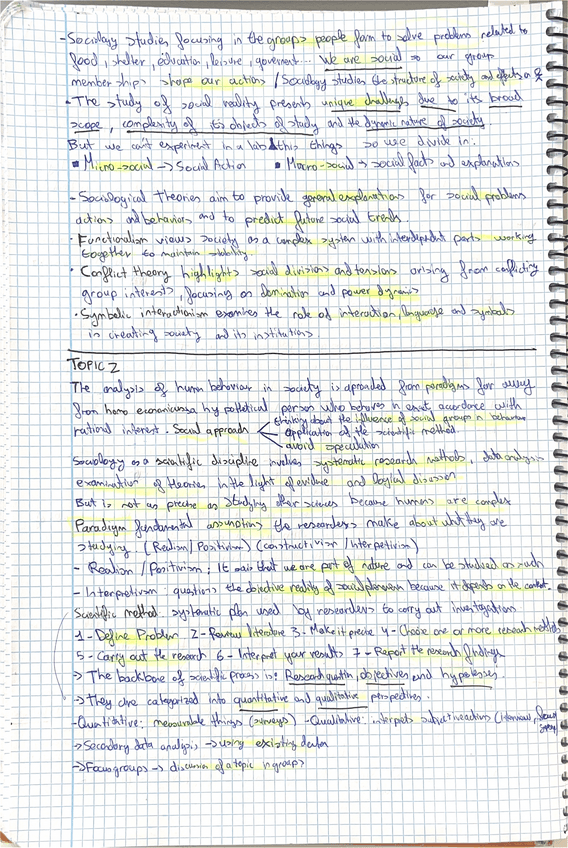 - Sociology studies focusing in the groups people form to solve problems related to
food, shelter, education, leisure, goverment... We are social → our group
memberships shape our actions / Sociology studies the structure of society and effects on
- The study of social reality presents unique challenges due to its broad
scope, complexity of its objects of study and the dynamic nature of society
But we can't experiment in a lab this things so use divide in:
▪ Micro-social → Social Action ▪ Macro-social → social facts and explanations
- Sociological theories aim to provide general explanations for social problems
actions and behaviors and to predict future social trends.
· Functionalism views society as a complex system with interdependent parts working
together to maintain stability
· Conflict theory highlights social divisions and tensions arising from conflicting
group interests, focusing on domination and power dynamics
· Symbolic interactionism examines the role of interaction, language and symbols
in creating society and its institutions.
TOPIC 2
The analysis of human behaviour in society is aproaded from paradigms far away
from homo economicus a hypothetical person who behaves in exact accordance with
rational interest. Social approach
thinking about the influence of social groups in behaviour
application of the scientific method
avoid speculation
Sociology as a scientific discipline involves systematic research methods, data analysis
examination of theories in the light of evidence and logical discussion
But is not as precise as studying other sciences because humans are complex
Paradigm fundamental assumptions the researchers make about what they are
studying. (Realism / Positivism) (constructivism / Interpretivism)
- Realism / Positivism: It says that we are part of nature and can be studied as such
- Interpretivism: questions the objective reality of social phenomenon because it depends on the context.
Scientific method: systematic plan used by researchers to carry out investigations
1- Define Problem 2- Review literature 3- Make it precise 4- Choose one or more research methods
5- Carry out the research 6- Interpret your results 7- Report the research findings
→ The backbone of scientific process is: Research question, objectives and hypotheses.
→ They are categorized into quantitative and qualitative perspectives.
- Quantitative: measurable things (surveys) - Qualitative: interprets subjective actions (interview, focus group)
→ Secondary data analysis → using existing data
→ Focus groups → discussion of a topic in groups